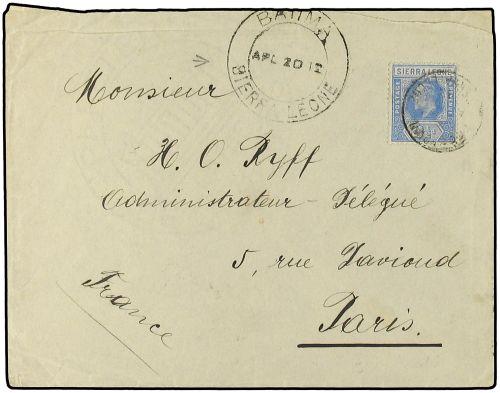 BAIIMA
APL 20 12
SIERRA LEONE
SIERRA LEONE
POSTAGE
Monsieur
H. O. Ryff
Administrateur-Délégué
5, rue Davioud
Paris.
France